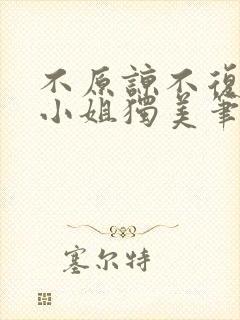 不原諒不復
小姐獨美筆
塞尔特